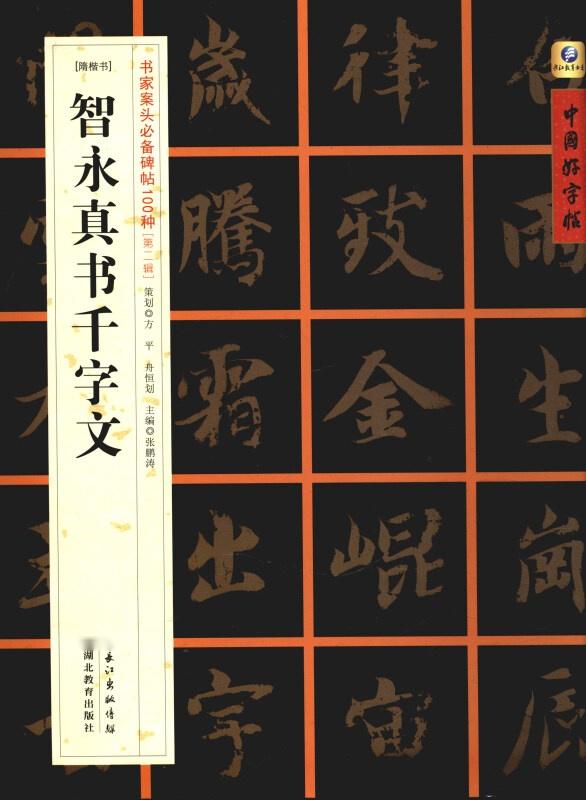 [隋楷书]
智永真书千字文
书家案头必备碑帖100种[第二辑]
策划◎方 平 舟恒划 主编◎张鹏涛
长江出版传媒
湖北教育出版社
长江教育出版
中國好字帖
雨
生
崗
辰
律
致
金
崐
宙
歲
騰
霜
出
宇